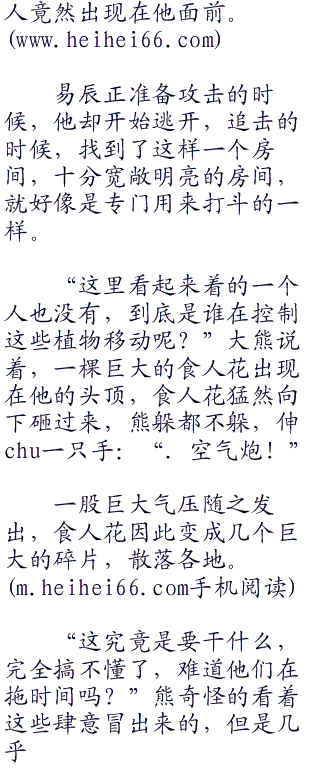 人竟然出现在他面前。
(www.heihei66.com)
易辰正准备攻击的时
候，他却开始逃开，追击的
时候，找到了这样一个房
间，十分宽敞明亮的房间，
就好像是专门用来打斗的一
样。
“这里看起来着的一个
人也没有，到底是谁在控制
这些植物移动呢？”大熊说
着，一棵巨大的食人花出现
在他的头顶，食人花猛然向
下砸过来，熊躲都不躲，伸
chu一只手：“．空气炮！”
一股巨大气压随之发
出，食人花因此变成几个巨
大的碎片，散落各地。
(m.heihei66.com手机阅读)
“这究竟是要干什么，
完全搞不懂了，难道他们在
拖时间吗？”熊奇怪的看着
这些肆意冒出来的，但是几
乎